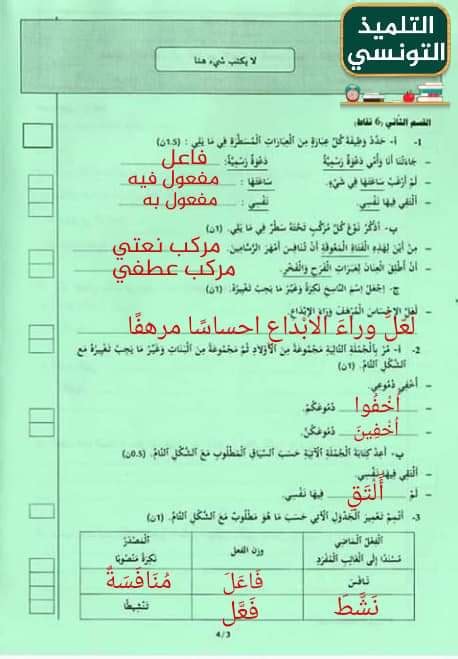 التلميذ
التونسي
لا يكتب شيء هنا
القسم الثاني (6 نقاط)
1- أ- حَدِّدْ وَظِيفَةَ كُلِّ عِبَارَةٍ مِنَ العِبَارَاتِ المُسَطَّرَةِ فِي مَا يَلِي : (1.5ن)
- جَاءَتْنَا أَنَا وَأُمِّي دَعْوَةٌ رَسْمِيَّةٌ. دَعْوَةٌ رَسْمِيَّةٌ: فاعل
- لَمْ أَرْغَبْ سَاعَتَهَا فِي شَيْءٍ. سَاعَتَهَا : مفعول فيه
- أَلْتَقِي فِيهَا نَفْسِي. نَفْسِي : مفعول به
ب- أُذْكُرْ نَوْعَ كُلِّ مُرَكَّبٍ تَحْتَهُ سَطْرٌ فِي مَا يَلِي. (1ن)
- مِنْ أَيْنَ لِهَذِهِ الفَتَاةِ المُعَوَّقَةِ أَنْ تُنَافِسَ أَمْهَرَ الرَّسَّامِينَ. مركب نعتي
- أَنْ أُطْلِقَ العِنَانَ لِعَبَرَاتِ الفَرَحِ وَالفَخْرِ. مركب عطفي
ج- اِجْعَلْ اِسْمَ النَّاسِخِ نَكِرَةً وَغَيِّرْ مَا يَجِبُ تَغْيِيرُهُ. (1ن)
لَعَلَّ الإِحْسَاسَ المُرْهَفَ وَرَاءَ الإِبْدَاعِ.
لعَلّ وراءَ الابْداع احساسًا مرهفًا
2- أ- مُرْ بِالجُمْلَةِ التَّالِيَةِ مَجْمُوعَةً مِنَ الأَوْلَادِ ثُمَّ مَجْمُوعَةً مِنَ البَنَاتِ وَغَيِّرْ مَا يَجِبُ تَغْيِيرُهُ مَعَ
الشَّكْلِ التَّامِّ. (1ن)
- أُخْفِي دُمُوعِي.
- أخْفُوا دُمُوعَكُمْ.
- أخْفِينَ دُمُوعَكُنَّ.
ب- أَعِدْ كِتَابَةَ الجُمْلَةِ الآتِيَةِ حَسَبَ السِّيَاقِ المَطْلُوبِ مَعَ الشَّكْلِ التَّامِّ. (0.5ن)
- أَلْتَقِي فِيهَا نَفْسِي.
- لَمْ أَلْتَقِ فِيهَا نَفْسِي.
3- أَتْمِمْ تَعْمِيرَ الجَدْوَلِ الآتِي حَسَبَ مَا هُوَ مَطْلُوبٌ مَعَ الشَّكْلِ التَّامِّ. (1ن)
الفِعْلُ المَاضِي مُسْنَدًا إِلَى الغَائِبِ المُفْرَدِ وزن الفعل المَصْدَرُ نَكِرَةً مَنْصُوبًا
نَافَسَ فَاعَلَ مُنَافَسَةً
نَشَّطَ فَعَّلَ تَنْشِيطًا
4/3